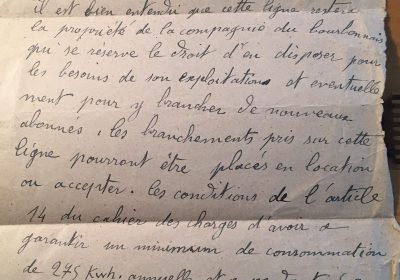 il est bien entendu que cette ligne restera
la propriété de la compagnie du bourbonnais
qui se réserve le droit d'en disposer pour
les besoins de son exploitation et eventuelle
ment pour y brancher de nouveaux
abonnés, les branchements pris sur cette
ligne pourront être placés en location
ou accepter. les conditions de l'article
14 du cahier des charges d'avoir a
garantir un minimum de consommation
de 275 Kwh. annuelle et